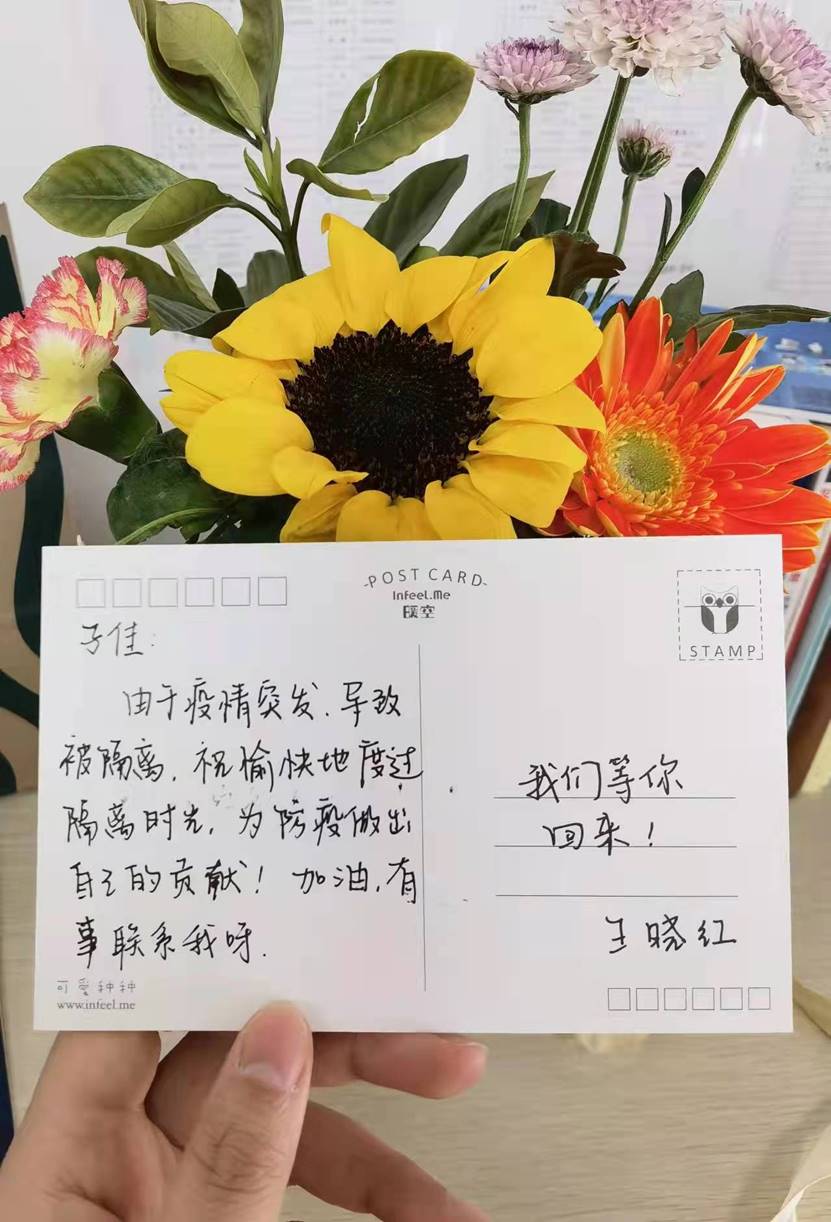 POST CARD
InFeeL.Me
暖空
STAMP
子佳:
由于疫情突发,导致
被隔离,祝愉快地度过
隔离时光,为防疫做出
自己的贡献!加油,有
事联系我呀.
我们等你
回来!
王晓红
可爱种种
www.infeel.me